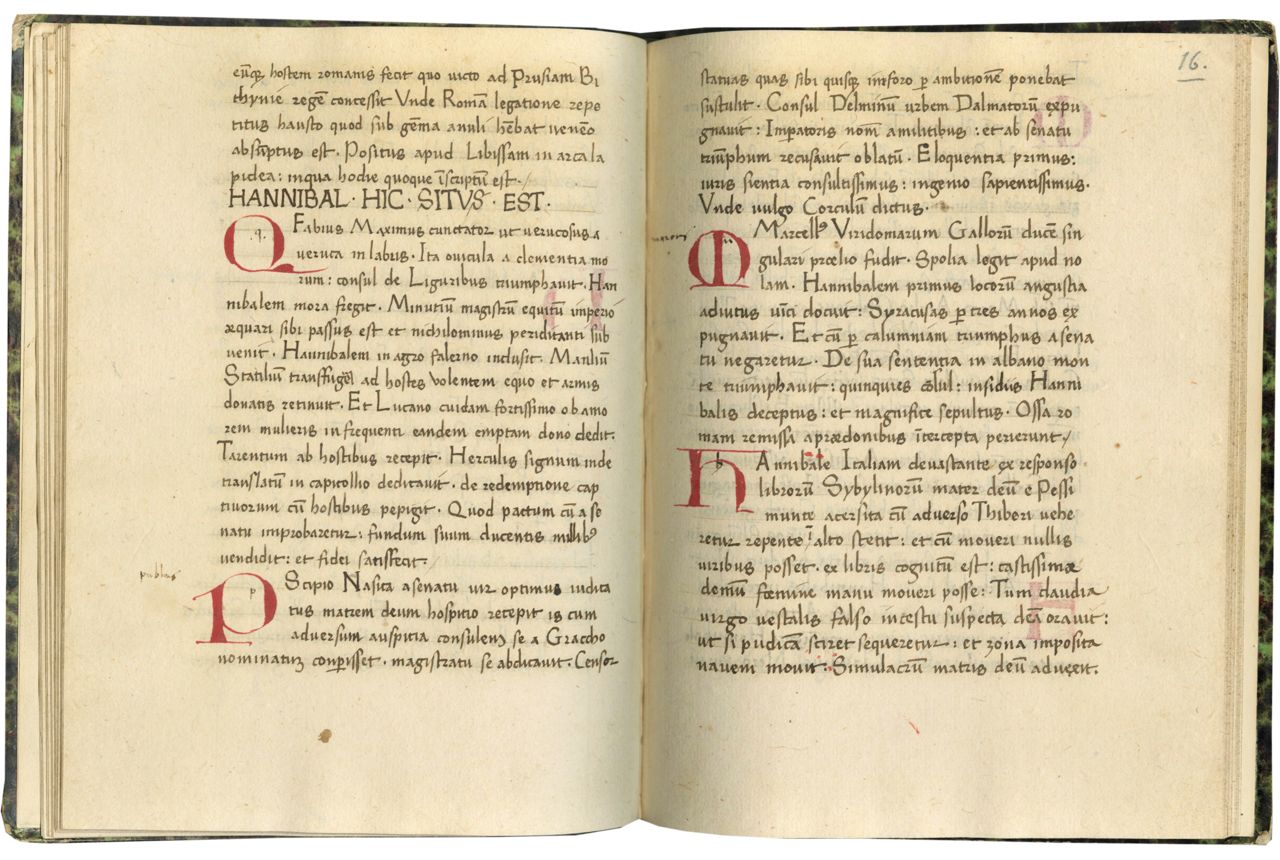 eūq; hostem romanis fecit quo uicto ad Prusiam Bi
thynie regē concessit Vnde Romā legatione repe
titus hausto quod sub gēma anuli hēbat venēo
absūptus est. Positus apud Libissam in arca la
pidea: inqua hodie quoque īscriptū est./
HANNIBAL· HIC· SITVS· EST·
Q Fabius Maximus cunctator ut verucosus a
.q.
veruca in labus. Ita ovicula a clementia mo
rum: consul de Liguribus triumphavit. Han
nibalem mora fregit. Minutiū magistrū equitū imperio
æquari sibi passus est et nichilominus periditanti sub
venit. Hannibalem in agro falerno inclusit. Manliū
Statiliū transfugē ad hostes volentem equo et armis
donatis retinuit. Et Lucano cuidam fortissimo ob amo
rem mulieris in frequenti eandem emptam dono dedit.
Tarentum ab hostibus recepit. Herculis signum inde
translatū in capitollio dedicavit. de redemptione cap
tivorum cū hostibus pepigit. Quod pactum cū a se
natu improbaretur: fundum suum ducentis millibꝰ
vendidit: et fidei satisfecit./
publius
P Scipio Nasica a senatu vir optimus iudica
p
tus matrem deum hospitio recepit is cum
adversum auspitia consulem se a Graccho
nominatum conperisset. magistratu se abdicavit. Censor
16.
statuas quas sibi quisq; inforo p ambitionē ponebat
sustulit. Consul Delminū urbem Dalmatorū expu
gnavit: Imperatoris nomē amilitibus: et ab senatu
triūphum recusavit oblatū. Eloquentia primus:
iuris sientia consultissimus: ingenio sapientissimus.
Vnde vulgo Corculū dictus.
M Marcellꝰ Viridomarum Gallorū ducē sin
gulari prœlio fudit. Spolia legit apud no
lam. Hannibalem primus locorū angustia
adiutus uīci docuit: Syracusas p tres annos ex
pugnavit. Et cū p calumniam triumphus a sena
tu negaretur. De sua sententia in albano mon
te triūmphavit: quinquies cōsul: insidiis Hanni
balis deceptus: et magnifice sepultus. Ossa ro
mam remissa aprædonibus ītercepta perierunt/
H Annibale Italiam devastante ex responso
h
librorū Sybylinorū mater deū e Pessi
munte acersita cū adverso Thiberi vehe
retur repente ī alto stetit: et cū moveri nullis
viribus posset. ex libris cognitū est: castissimæ
demū fœmine manu moveri posse. Tum claudia
virgo vestalis falso incestu suspecta deā oravit:
ut si pudicā sciret sequeretur: et zona imposita
navem movit. Simulacrū matris deū advexit.